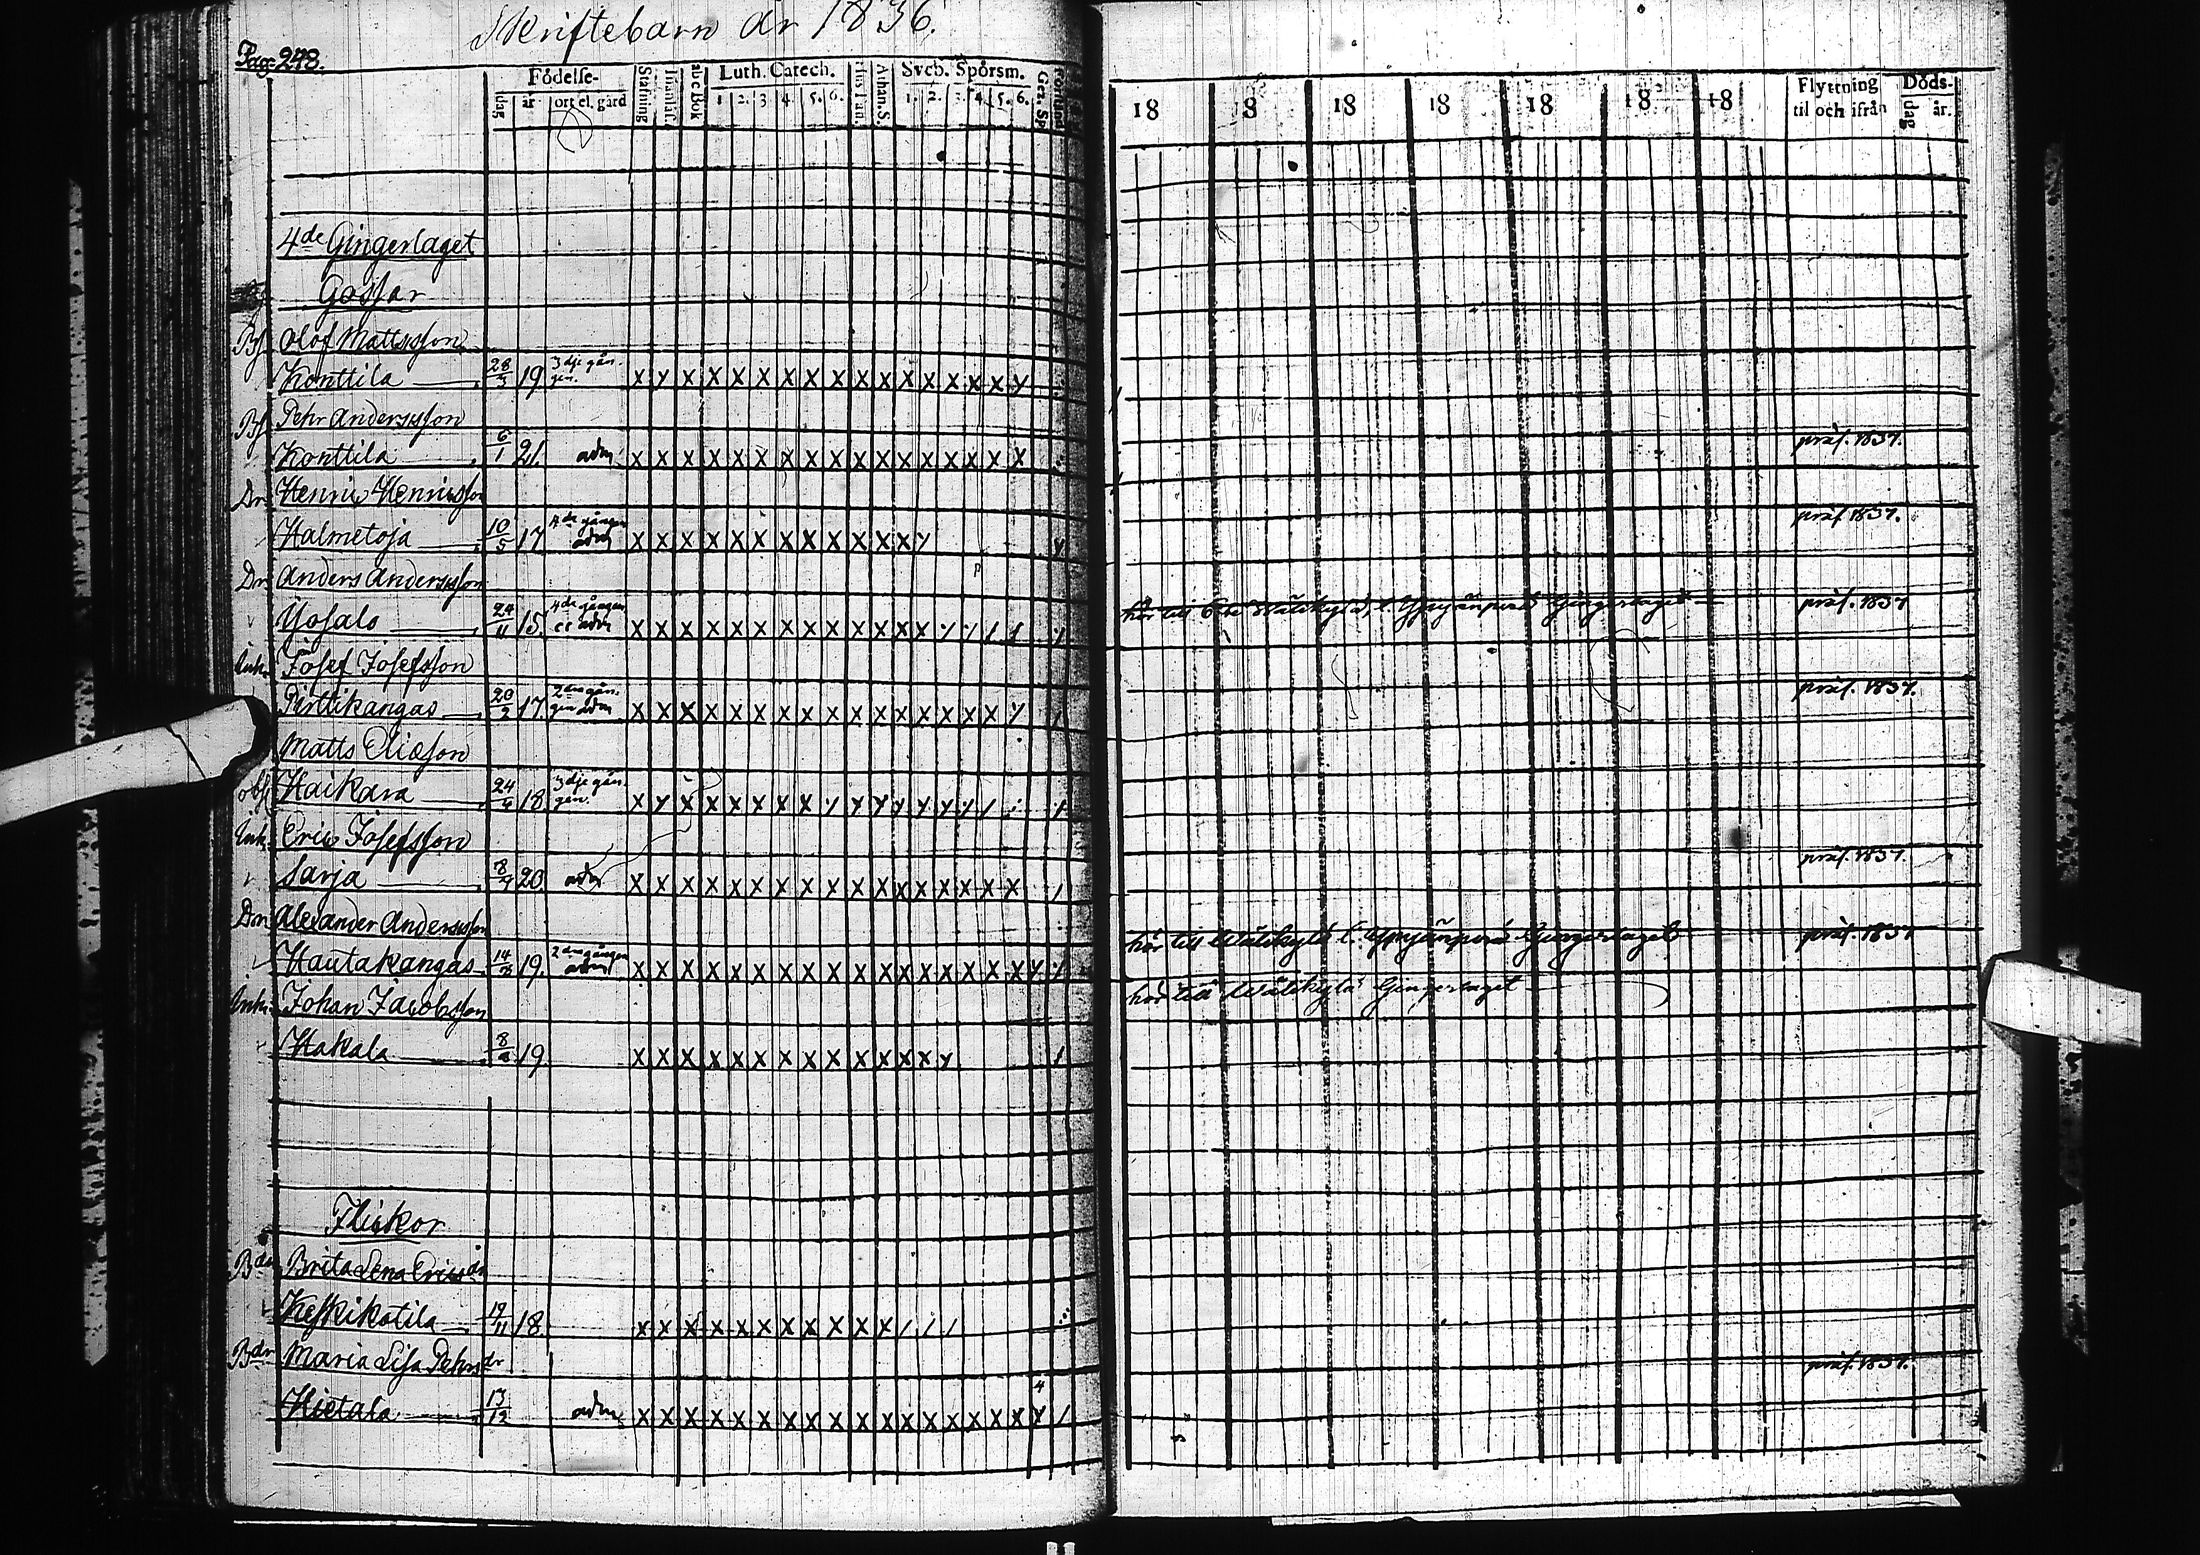 Skriftebarn år 1836.
Pag. 248.
Födelse-
dag år ort el. gård
Stafning Innanläsn. abc Bok Luth. Catech. 1 2. 3 4. 5. 6. Hus Taf. Athan. S. Sveb. Spörsm. 1. 2. 3. 4. 5. 6. Gez. Sp. Förstånd
4de Gingerlaget
Gossar
Bs. Olof Mattsson
Konttila 28/3 19. 3dje gån-
gen. x y x x x x x x x x x x x x x x y
Bs. Pehr Andersson
Konttila 6/1 21. adm. x x x x x x x x x x x x x x x x x
Dr. Henric Henricsson
Halmetoja 10/5 17 4de gången
adm x x x x x x x x x x x x y
Dr. Anders Andersson
Yosalo 24/11 15. 4de gången
adm x x x x x x x x x x x x x
Inh. Josef Josefsson
Pirttikangas 20/2 17. 2dra gån-
gen adm x x x x x x x x x x x x x x x x y
Matts Eliasson
obs. Haikara 24/4 18 3dje gån-
gen. x y x x x x x x y y y y y y y 1
Inh. Eric Josefsson
Sarja 8/4 20 adm. x x x x x x x x x x x x x x x x x 1
Dr. Alexander Andersson
Hautakangas 14/8 19. 2dra gången
adm x x x x x x x x x x x x x x x x x y 1
Inh. Johan Jacobsson
Hakala 8/4 19 x x x x x x x x x x x x x y 1
Flickor
Bdr Brita Lena Ericsdr
Keskikotila 19/11 18 x x x x x x x x x x x 1 1 1
Bdr Maria Lisa Pehrsdr
Hietala 13/12 adm. x x x x x x x x x x x x x x x x x y 1
18 18 18 18 18 18 18 Flyttning
til och ifrån Döds-
dag år.
präs. 1837.
präs. 1837.
präs. 1837
präs. 1837.
präs. 1837.
hör till Wälikylä l. Ypyänperä Gingerlaget präs. 1837
hör till Wälikylä Gingerlaget
präs. 1837.